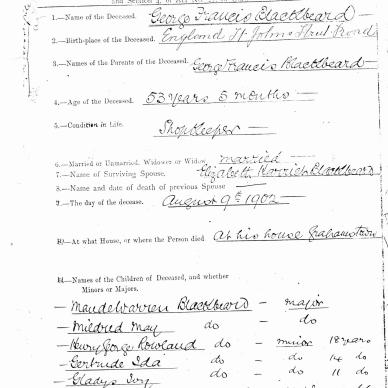 1.—Name of the Deceased. George Francis Blackbeard
2.—Birth-place of the Deceased. England St Johns Strut Road
3.—Names of the Parents of the Deceased. George Francis Blackbeard
4.—Age of the Deceased. 53 years 5 months
5.—Condition in Life. Shopkeeper
6.—Married or Unmarried, Widower or Widow. married
7.—Name of Surviving Spouse. Elizabeth Blackbeard
8.—Name and date of death of previous Spouse
7.—The day of the decease. August 9th 1902
10—At what House, or where the Person died At his house Grahamstown
11.—Names of the Children of Deceased, and whether
Minors or Majors.
— Maude Warren Blackbeard — major
— Mildred May do — do
— Henry George Rowland do — minor 18 years
— Gertrude Ida do — do 14 do
— Gladys Ivy do do 11 do